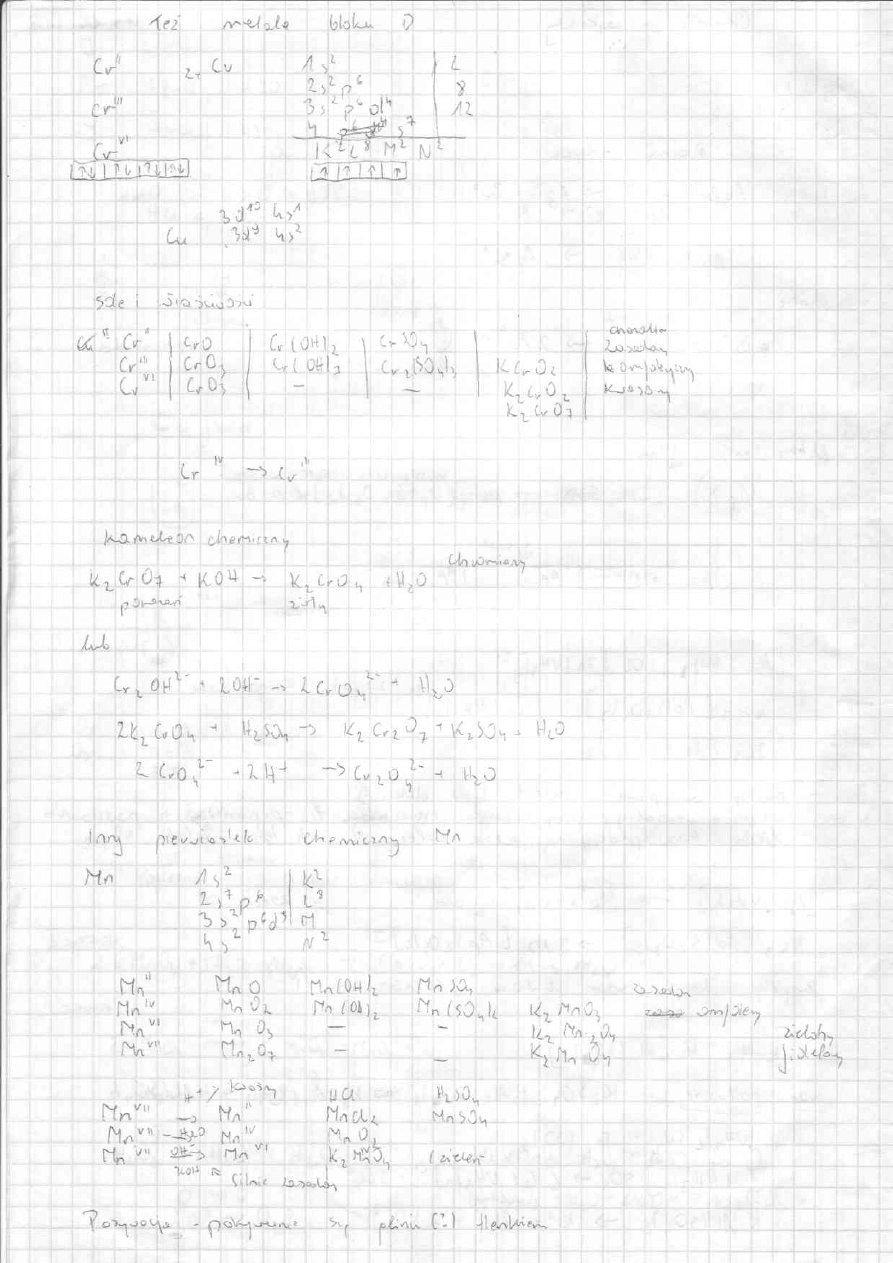 Też metale bloku D
Cr^II ₂₄Cu 1s² | 2
2s² p⁶ | 8
Cr^III 3s² p⁶ d⁴ | 12
4 s⁷
Cr^VI K² L⁸ M² N²
↑↓ ↑↓ ↑↓ ↑↓ ↑ ↑ ↑ ↑
3d¹⁰ 4s¹
Cu 3d⁹ 4s²
sole i
charakter
Cr^II | CrO | Cr(OH)₂ | CrSO₄ | | zasadowy
Cr^III | CrO₃ | Cr(OH)₃ | Cr₂(SO₄)₃ | KCrO₂
Cr^VI | CrO₃ | — | — | K₂CrO₂ | kwasowy
K₂CrO₇
Cr^IV → Cr^III
Kameleon chemiczny
Chromiany
K₂CrO₇ + KOH → K₂CrO₄ + H₂O
żółty
lub
Cr₂OH²⁻ + 2OH⁻ → 2CrO₄²⁻ + H₂O
2K₂CrO₄ + H₂SO₄ → K₂Cr₂O₇ + K₂SO₄ + H₂O
2CrO₄²⁻ + 2H⁺ → Cr₂O₄²⁻ + H₂O
Inny pierwiastek chemiczny Mn
Mn 1s² | K²
2s⁷ p⁶ | L⁸
3s² p⁶ d⁵ | M
4s² N²
Mn^II MnO Mn(OH)₂ MnSO₄ zasadow
Mn^IV MnO₂ Mn(OH)₂ Mn(SO₄)₂ K₂MnO₃
Mn^VI MnO₃ — — K₂Mn₂O₄ zielony
Mn^VII Mn₂O₇ — — K₂MnO₄
H⁺ kwasny HCl H₂SO₄
Mn^VII → Mn^II MnCl₂ MnSO₄
Mn^VII H₂O → Mn^IV MnO₂
Mn^VII OH⁻ → Mn^VI K₂MnO₄ (zieleń
silnie zasadow
Pasywacja - pokrywanie się (?) tlenkiem